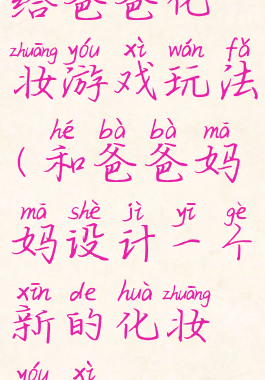 给爸爸化
zhuāng yóu xì wán fǎ
妆游戏玩法
hé bà bà mā
（和爸爸妈
mā shè jì yī gè
妈设计一个
xīn de huà zhuāng
新的化妆
yóu xì